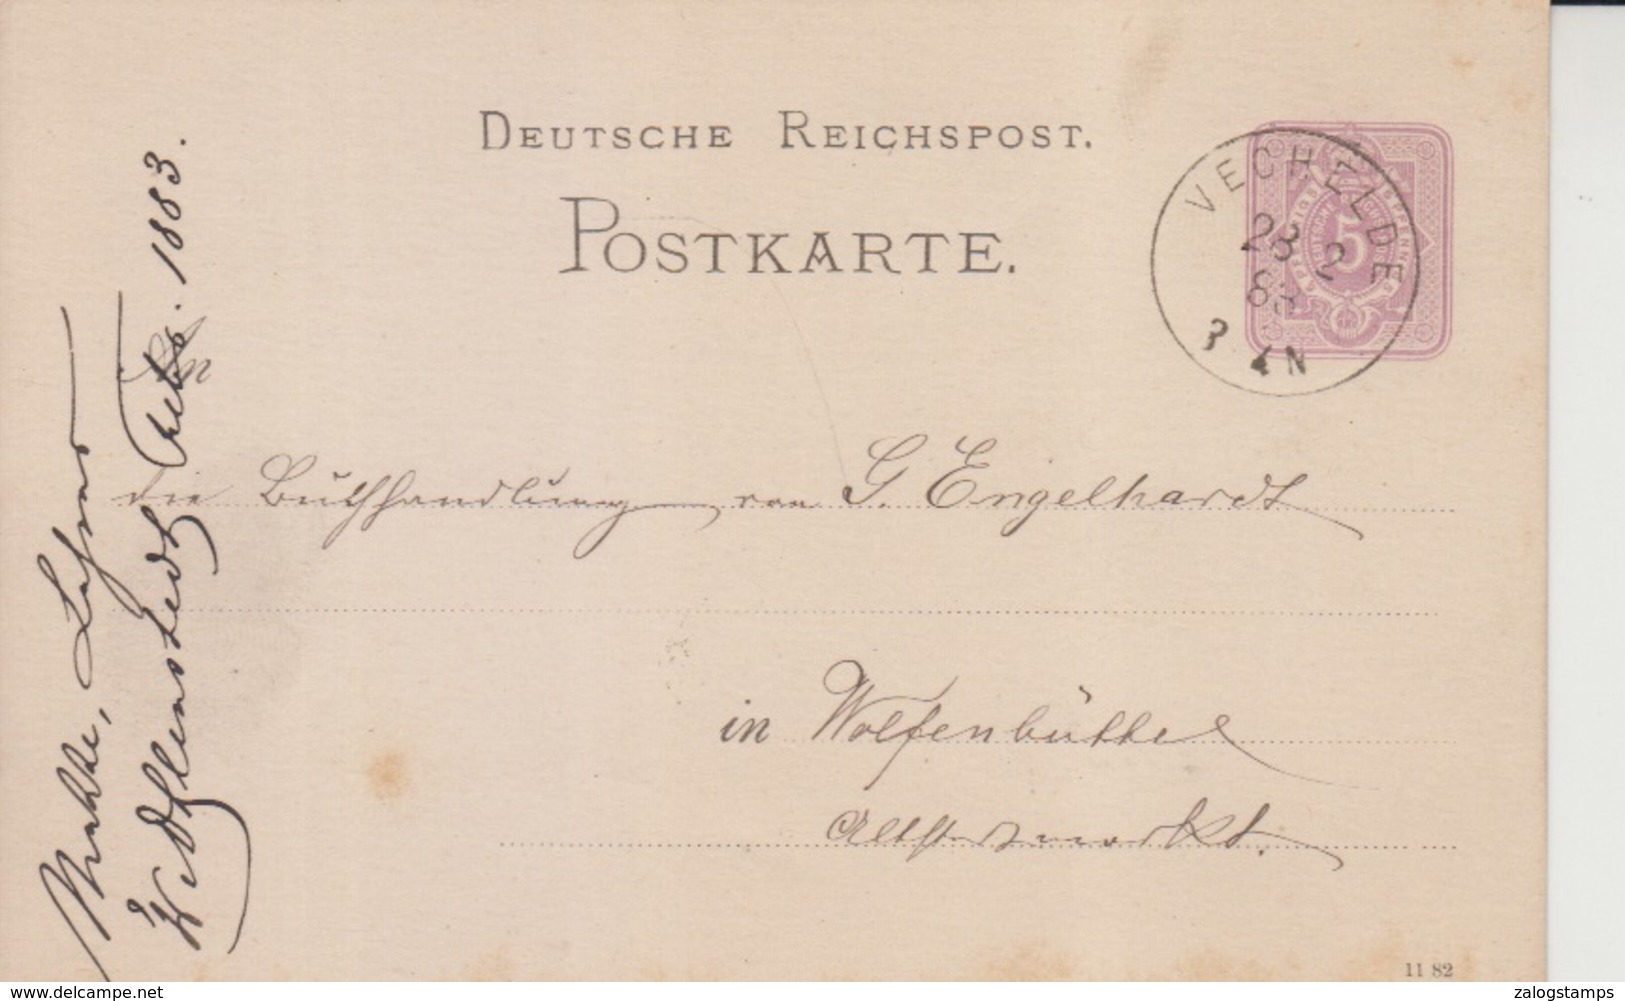 DEUTSCHE REICHSPOST.
POSTKARTE.
VECHELDE
28 2
83
3-4N
5
An
die Buchhandlung von G. Engelhardt
in Wolfenbüttel
Febr. 1883.
11 82
www.delcampe.net
zalogstamps